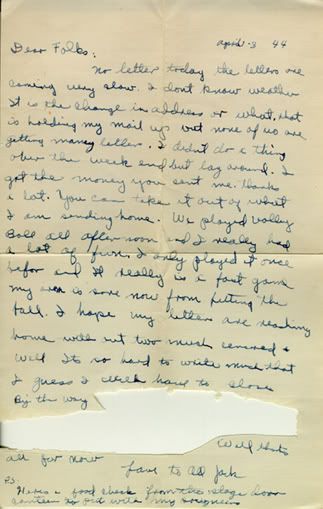 april-3 44
Dear Folks:
No letter today the letters are
coming very slow. I dont know weather
It is the change in address or what, that
is holding my mail up but none of us are
getting many letters. I didnt do a thing
over the week end but lay around. I
got the money you sent me. Thanks
a lot. You can take it out of what
I am sending home. We played Volley
Ball all afternoon and I really had
a lot of fun. I only played it once
befor and It really is a fast game
my arm is sore now from hitting the
ball. I hope my letters are reaching
home with out two much censored
Well Its so hard to write much that
I guess I will have to close
By the way
Well thats
all for now
Love to all Jack
P.S.
Heres a food check from the stage door
canteen to put with my souvenirs